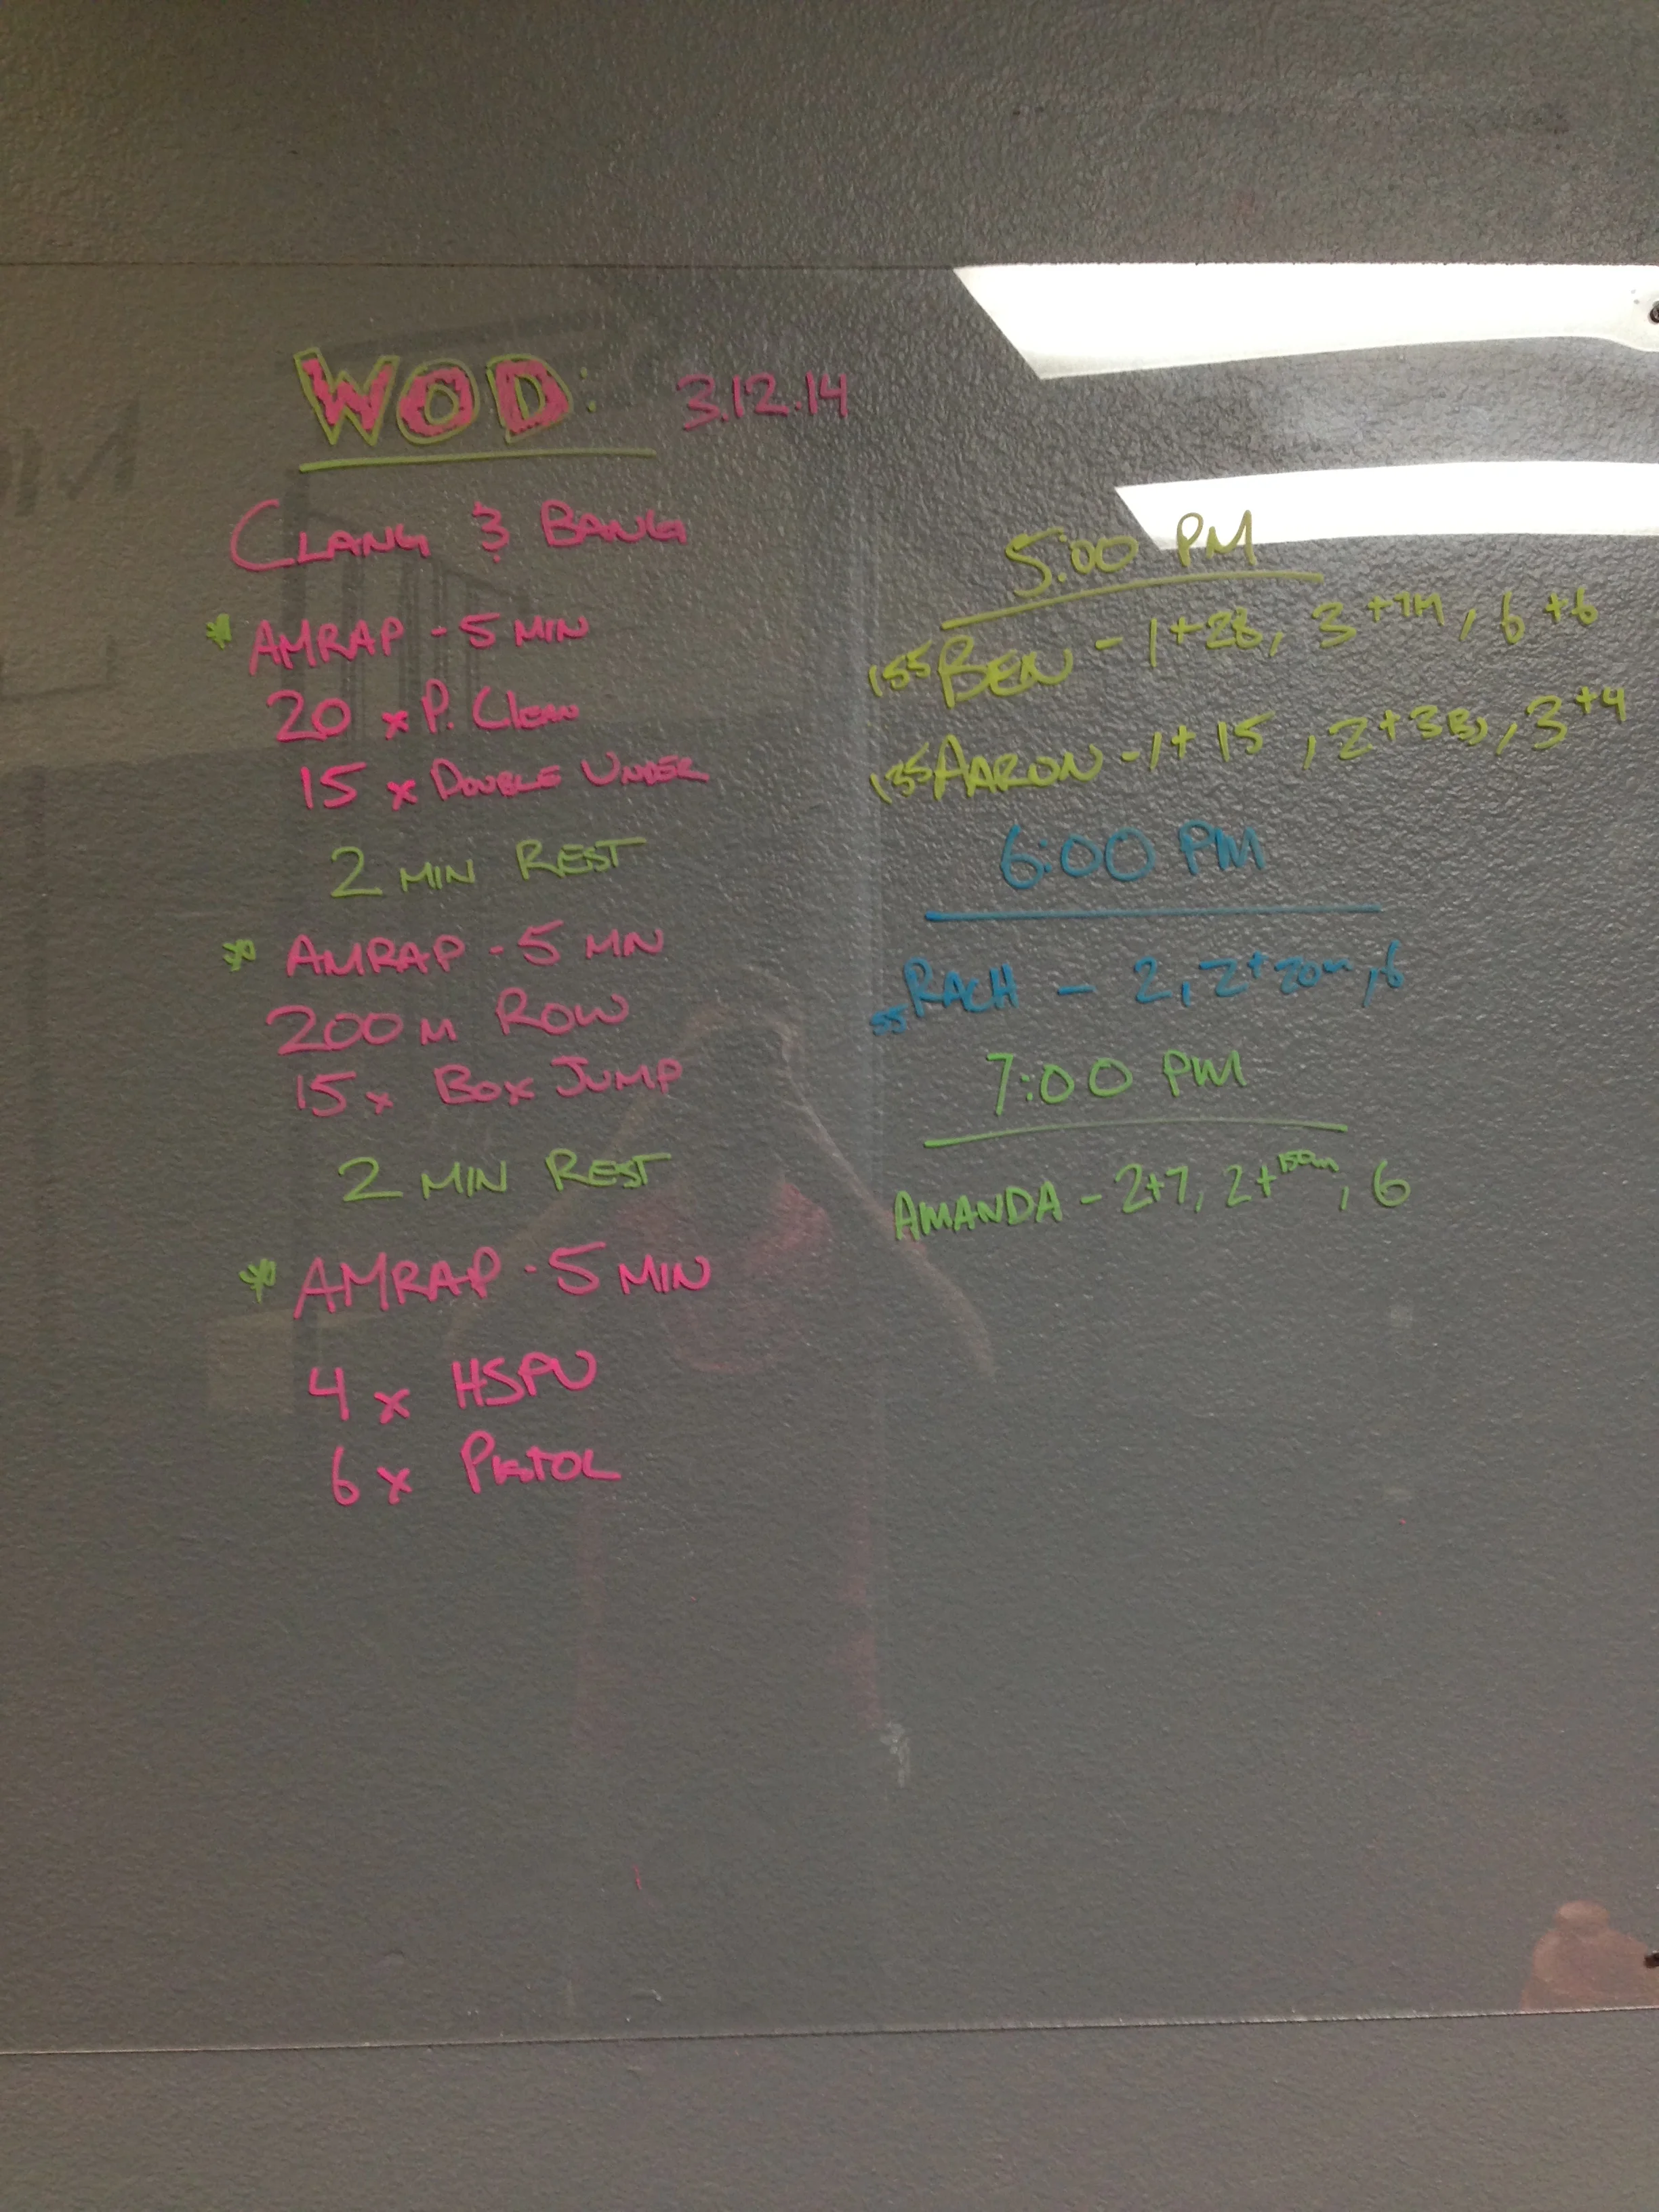 WOD: 3.12.14
CLANG & BANG
* AMRAP - 5 MIN
20 x P. CLEAN
15 x DOUBLE UNDER
2 MIN REST
* AMRAP - 5 MIN
200 M ROW
15 x BOX JUMP
2 MIN REST
* AMRAP - 5 MIN
4 x HSPU
6 x PISTOL
5:00 PM
155 BEN - 1+28, 3 , 6+6
135 AARON - 1+15, 2+3BJ, 3+4
6:00 PM
55 RACH - 2, 2+20m, 6
7:00 PM
AMANDA - 2+7, 2+150m, 6